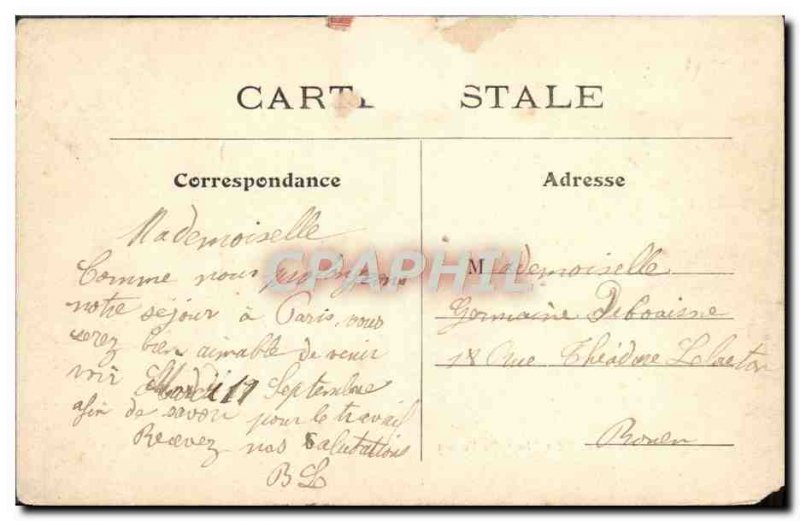 CARTE STALE
Correspondance
Adresse
Mademoiselle
Comme nous prolongeons
notre séjour à Paris, vous
serez bien aimable de venir
voir Mardi 11 Septembre
afin de savoir pour le travail
Recevez nos Salutations
BL
Mademoiselle
Germaine
18 Rue Théodore
Rouen
CPAPHIL.COM